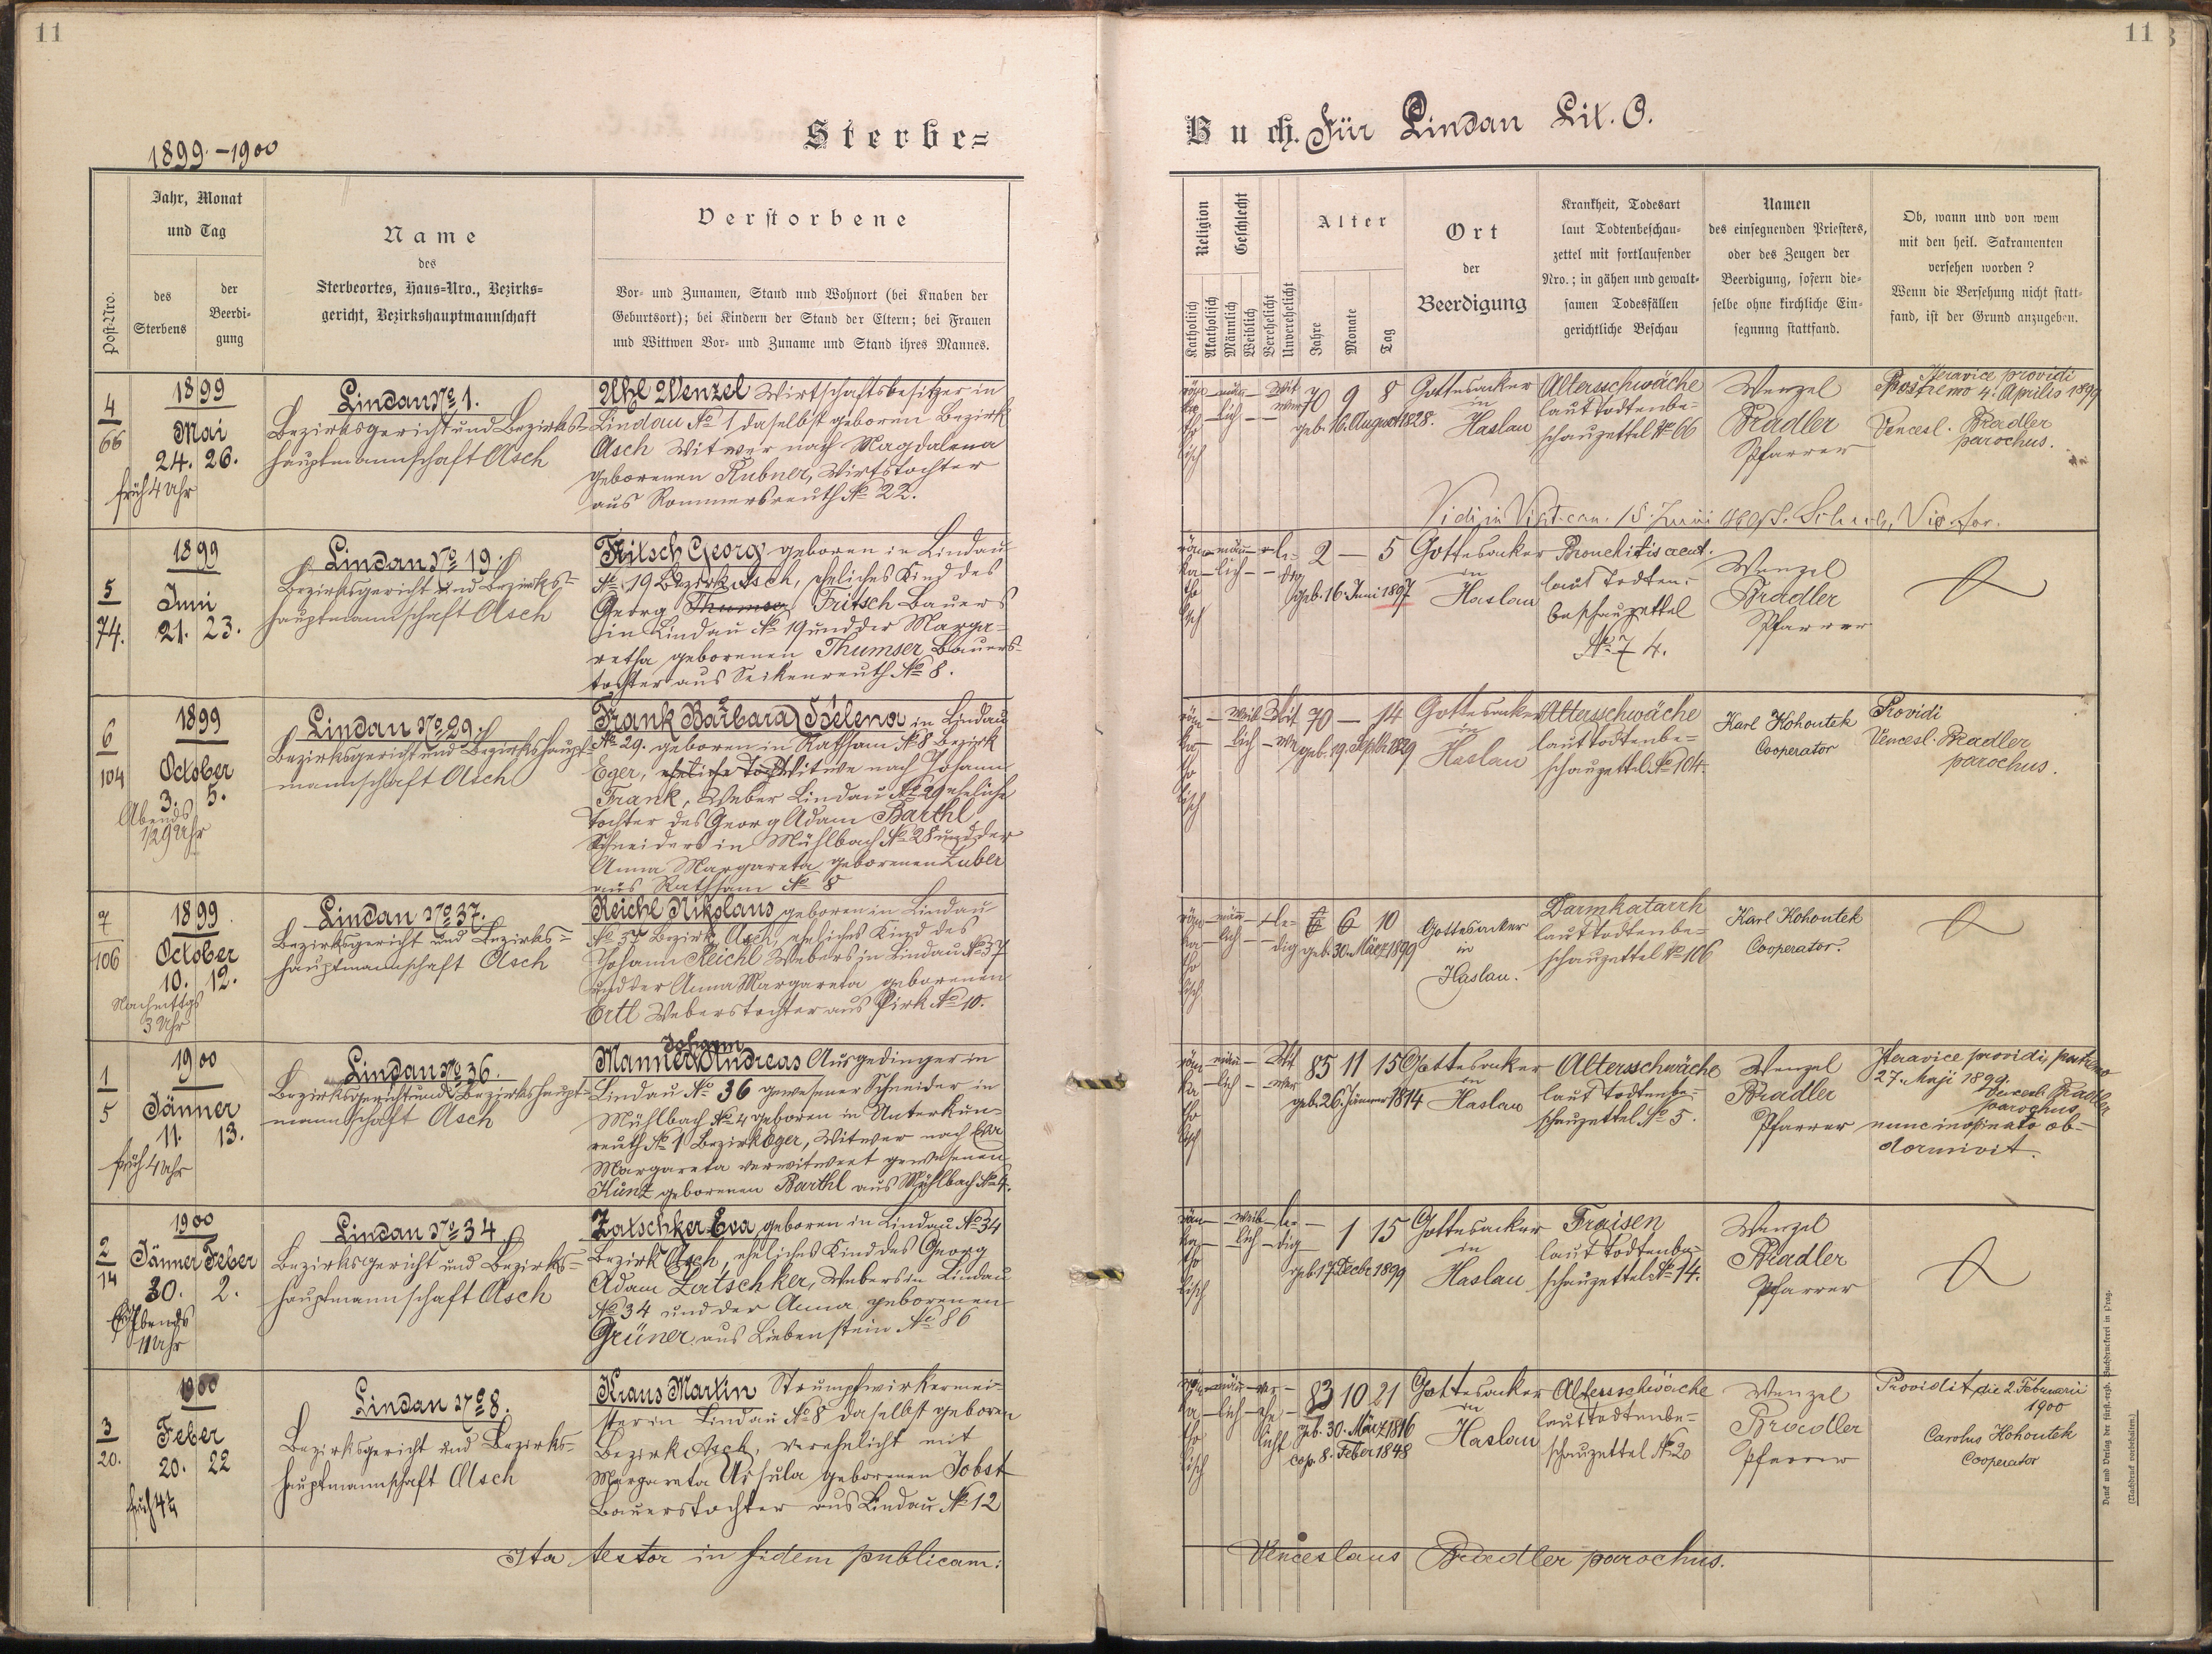 11
11
1899.-1900
Sterbe=
Buch. Für Lindau Lit. O.
Post-Nro.
Jahr, Monat
und Tag
des
Sterbens
der
Beerdi-
gung
Name
des
Sterbeortes, Haus-Nro., Bezirks-
gericht, Bezirkshauptmannschaft
Verstorbene
Vor- und Zunamen, Stand und Wohnort (bei Knaben der
Geburtsort); bei Kindern der Stand der Eltern; bei Frauen
und Wittwen Vor- und Zuname und Stand ihres Mannes.
Religion
Katholisch
Akatholisch
Geschlecht
Männlich
Weiblich
Verehelicht
Unverehelicht
Alter
Jahre
Monate
Tag
Ort
der
Beerdigung
Krankheit, Todesart
laut Todtenbeschau-
zettel mit fortlaufender
Nro.; in gähen und gewalt-
samen Todesfällen
gerichtliche Beschau
Namen
des einsegnenden Priesters,
oder des Zeugen der
Beerdigung, sofern die-
selbe ohne kirchliche Ein-
segnung stattfand.
Ob, wann und von wem
mit den heil. Sakramenten
versehen worden?
Wenn die Versehung nicht statt-
fand, ist der Grund anzugeben.
4
66
1899
Mai
24. 26.
früh 4 Uhr
Lindau No 1.
Bezirksgericht und Bezirks-
hauptmannschaft Asch
Uhl Wenzel Wirtschaftsbesitzer in
Lindau No 1 daselbst geboren Bezirk
Asch Witwer nach Magdalena
geborenen Rubner, Wirtstochter
aus Rommersreuth No 22.
röm-
ka-
tho
lisch
män-
lich
Wit
wer
70 9 8
geb. 16. August 1828.
Gottesacker
in
Haslau
Altersschwäche
laut Todtenbe-
schauzettel No 66
Wenzel
Bradler
Pfarrer
Iteravice providi
Postremo 4. Aprilis 1899
Vencesl. Bradler
parochus.
Vidi in Visit. can. 15. Junii
5
74.
1899
Juni
21. 23.
Lindau No 19.
Bezirksgericht und Bezirks-
hauptmannschaft Asch
Fritsch Georg geboren in Lindau
No 19 Bezirk Asch, eheliches Kind des
Georg Thumser Fritsch Bauers
in Lindau No 19 und der Marga-
retha geborenen Thumser Bauers-
tochter aus Seikenreuth No 8.
röm-
ka-
tho
lisch
män-
lich
le-
dig
2 — 5
geb. 16. Juni 1897
Gottesacker
in
Haslau
Bronchitis acut.
laut Todten-
beschauzettel
No 74.
Wenzel
Bradler
Pfarrer
6
104
1899
October
3. 5.
Abends
1/2 9 Uhr
Lindau No 29.
Bezirksgericht und Bezirkshaupt-
mannschaft Asch
Frank Barbara Helena in Lindau
No 29. geboren in Rathsam No 8 Bezirk
Eger, eheliche Toch Witwe nach Johann
Frank, Weber Lindau No 29 eheliche
Tochter des Georg Adam Barthl
Schneiders in Mühlbach No 28 und der
Anna Margareta geborenen Zuber
aus Rathsam No 8
röm-
ka-
tho
lisch
weib-
lich
Wit
we
70 — 14
geb. 19. Septb. 1829
Gottesacker
in
Haslau
Altersschwäche
laut Todtenbe-
schauzettel No 104.
Karl Kohoutek
Cooperator
Providi
Vencesl. Bradler
parochus.
7
106
1899
October
10. 12.
Nachmittgs
3 Uhr
Lindau No 37.
Bezirksgericht und Bezirks-
hauptmannschaft Asch
Reichl Nikolaus geboren in Lindau
No 37 Bezirk Asch, eheliches Kind des
Johann Reichl Webers in Lindau No 37
und der Anna Margareta geborenen
Ertl Weberstochter aus Pirk No 10.
röm-
ka-
tho
lisch
män-
lich
le-
dig
6 10
geb. 30. März 1899
Gottesacker
in
Haslau.
Darmkatarrh
laut Todtenbe-
schauzettel No 106
Karl Kohoutek
Cooperator.
1
5
1900
Jänner
11. 13.
früh 4 Uhr
Lindau No 36.
Bezirksgericht und Bezirkshaupt-
mannschaft Asch
Johann
Manner Andreas Ausgedinger in
Lindau No 36 gewesener Schneider in
Mühlbach No 4 geboren in Unterkun-
reuth No 1 Bezirk Eger, Witwer nach Eva
Margareta verwitwert gewesenen
Künz geborenen Barthl aus Mühlbach No 4.
röm-
ka-
tho
lisch
män-
lich
Wit
wer
85 11 15
geb. 26. Jänner 1814
Gottesacker
in
Haslau
Altersschwäche
laut Todtenbe-
schauzettel No 5.
Wenzel
Bradler
Pfarrer
Iteravice providi, postremo
27. Maji 1899.
Vencesl. Bradler
parochus
nunc inopinato ob-
dormivit.
2
14
1900
Jänner Feber
30. 2.
Abends
11 Uhr
Lindau No 34
Bezirksgericht und Bezirks-
hauptmannschaft Asch
Zatschker Eva geboren in Lindau No 34
Bezirk Asch, eheliches Kind des Georg
Adam Zatschker, Webers in Lindau
No 34 und der Anna geborenen
Grüner aus Liebenstein No 86
röm-
ka-
tho
lisch
weib-
lich
le-
dig
— 1 15
geb. 17. Decbr 1899
Gottesacker
in
Haslau
Fraisen
laut Todtenbe-
schauzettel No 14.
Wenzel
Bradler
Pfarrer
3
20.
1900
Feber
20. 22
früh 4 h
Lindau No 8.
Bezirksgericht und Bezirks-
hauptmannschaft Asch
Kraus Martin Strumpfwirkermei-
ster in Lindau No 8 daselbst geboren
Bezirk Asch, verehelicht mit
Margareta Ursula geborenen Jobst
Bauerstochter aus Lindau No 12
röm-
ka-
tho
lisch
män-
lich
ver-
ehe-
licht
83 10 21
geb. 30. März 1816
cop. 8. Feber 1848
Gottesacker
in
Haslau
Altersschwäche
laut Todtenbe-
schauzettel No 20
Wenzel
Bradler
Pfarrer
Providit die 2 Februarii
1900
Carolus Kohoutek
Cooperator
Ita testor in fidem publicam:
Venceslaus Bradler parochus.
Druck und Verlag der fürst-erzb. Buchdruckerei in Prag.
(Nachdruck vorbehalten.)